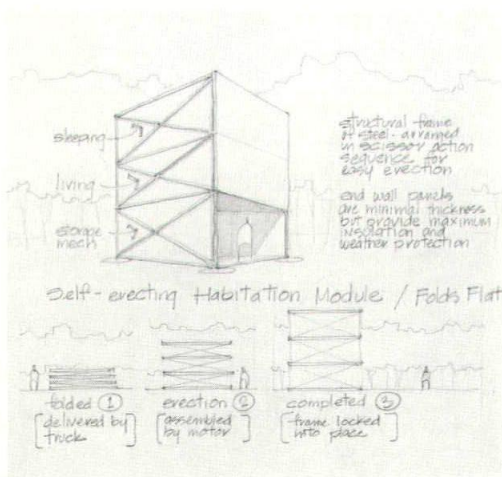 sleeping
living
storage
mech
structural frame
of steel - arranged
in scissor action
sequence for
easy erection
end wall panels
are minimal thickness
but provide maximum
insulation and
weather protection
Self-erecting Habitation Module / Folds Flat
folded ①
[delivered by
truck]
erection ②
[assembled
by motor]
completed ③
[frame locked
into place]